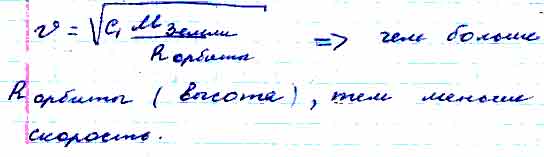 v = √(G M Земли / R орбиты) => чем больше
R орбиты (высота), тем меньше
скорость.